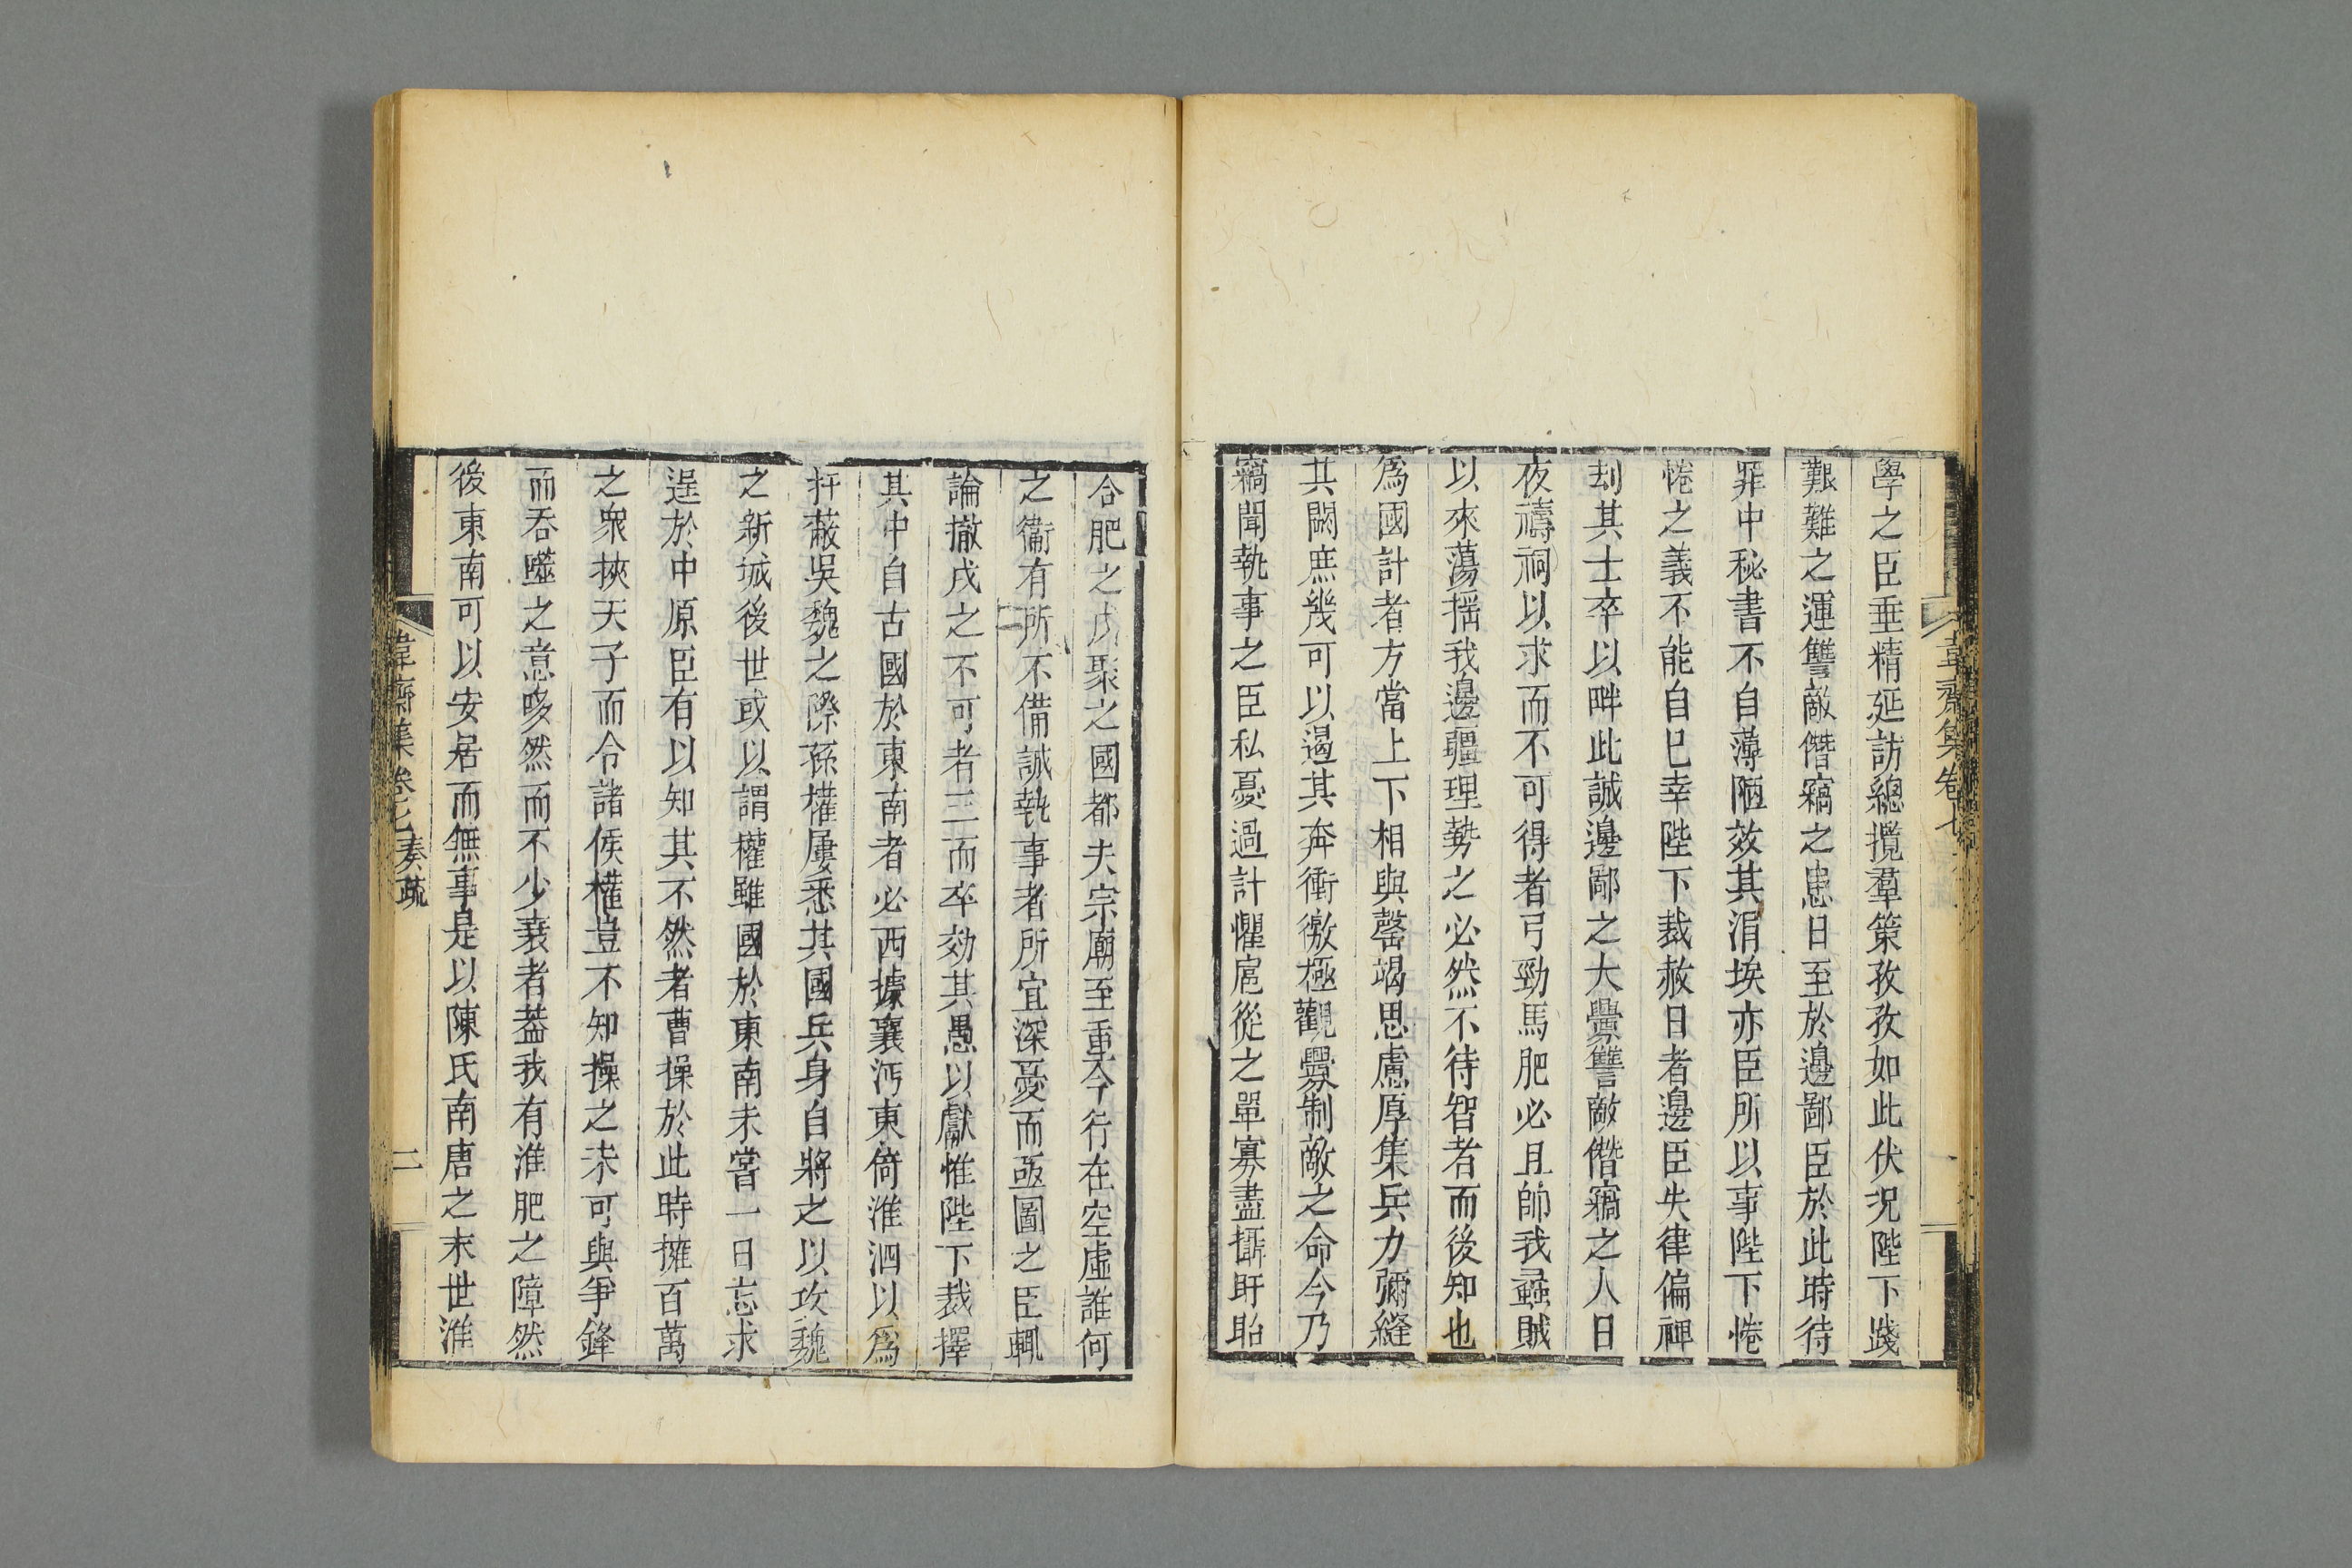 韋齋集卷七
學之臣垂精延訪總攬羣策孜孜如此伏况陛下踐
艱難之運讐敵僭竊之患日至於邊鄙臣於此時待
罪中秘書不自薄陋效其涓埃亦臣所以事陛下惓
惓之義不能自已幸陛下裁赦日者邊臣失律偏裨
刼其士卒以畔此誠邊鄙之大釁讐敵僭竊之人日
夜禱祠以求而不可得者弓勁馬肥必且帥我蟊賊
以來蕩揺我邊疆理勢之必然不待智者而後知也
爲國計者方當上下相與罄竭思慮厚集兵力彌縫
其闕庶幾可以遏其奔衝徼極觀釁制敵之命今乃
竊聞執事之臣私憂過計懼扈從之單寡盡攝盱眙
合肥之戍聚之國都夫宗廟至重今行在空虛誰何
之衞有所不備誠執事者所宜深憂而亟圖之臣輒
論撤戍之不可者三而卒効其愚以獻惟陛下裁擇
其中自古國於東南者必西據襄沔東倚淮泗以爲
扞蔽吳魏之際孫權屢悉其國兵身自將之以攻魏
之新城後世或以謂權雖國於東南未嘗一日忘求
逞於中原臣有以知其不然者曹操於此時擁百萬
之衆挾天子而令諸侯權豈不知操之未可與爭鋒
而吞噬之意㖼然而不少衰者葢我有淮肥之障然
後東南可以安居而無事是以陳氏南唐之末世淮
韋齋集卷七 奏疏 二